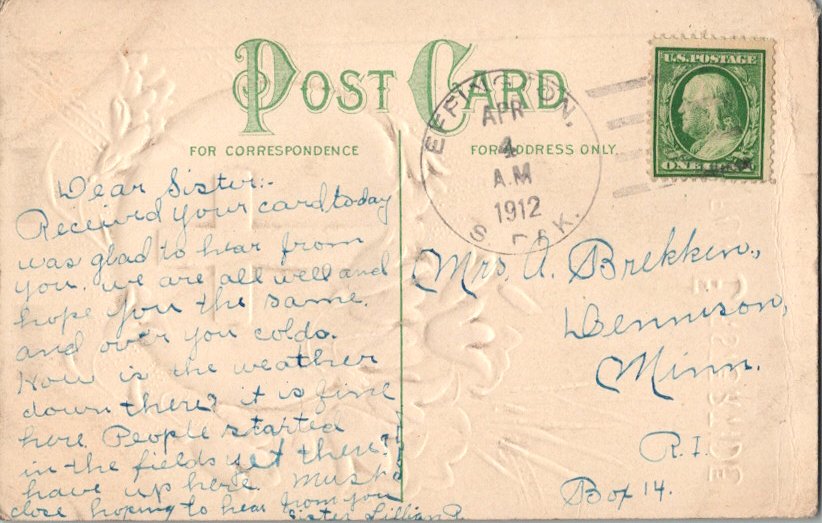 POST CARD
FOR CORRESPONDENCE
FOR ADDRESS ONLY.
U.S. POSTAGE
ONE CENT
EFFINGTON,
APR
4
A.M
1912
S. DAK.
Dear Sister:-
Received your card today
was glad to hear from
you. we are all well and
hope you the same.
and over you colds.
How is the weather
down there? it is fine
here. People started
in the fields yet there?
have up here. Must
close hoping to hear from you
Sister Lillian R.
Mrs. A. Brekken.,
Dennison,
Minn.
R. 1.
Box 14.